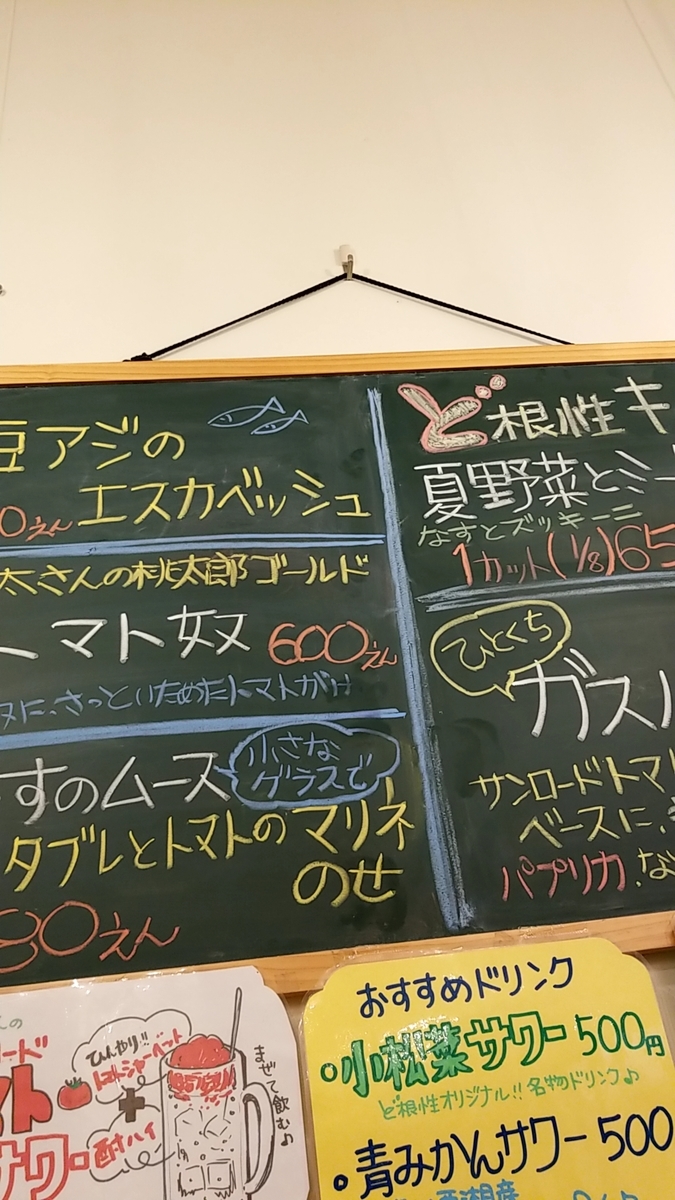 豆アジの
0えん エスカベッシュ
太さんの桃太郎ゴールド
トマト奴 600えん
に、さっといためたトマトがけ
すのムース 小さな
グラスで
タブレとトマトのマリネ
のせ
80えん
ど根性キ
夏野菜とミー
なすとズッキーニ
1カット(1/8)65
ひとくち
ガス
サンロードトマト
ベースに、
パプリカ、な
ひんやり!!
トマトシャーベット
+
サワー 酎ハイ
まぜて飲む♪
おすすめドリンク
小松菜サワー 500円
ど根性オリジナル!! 名物ドリンク♪
青みかんサワー 500